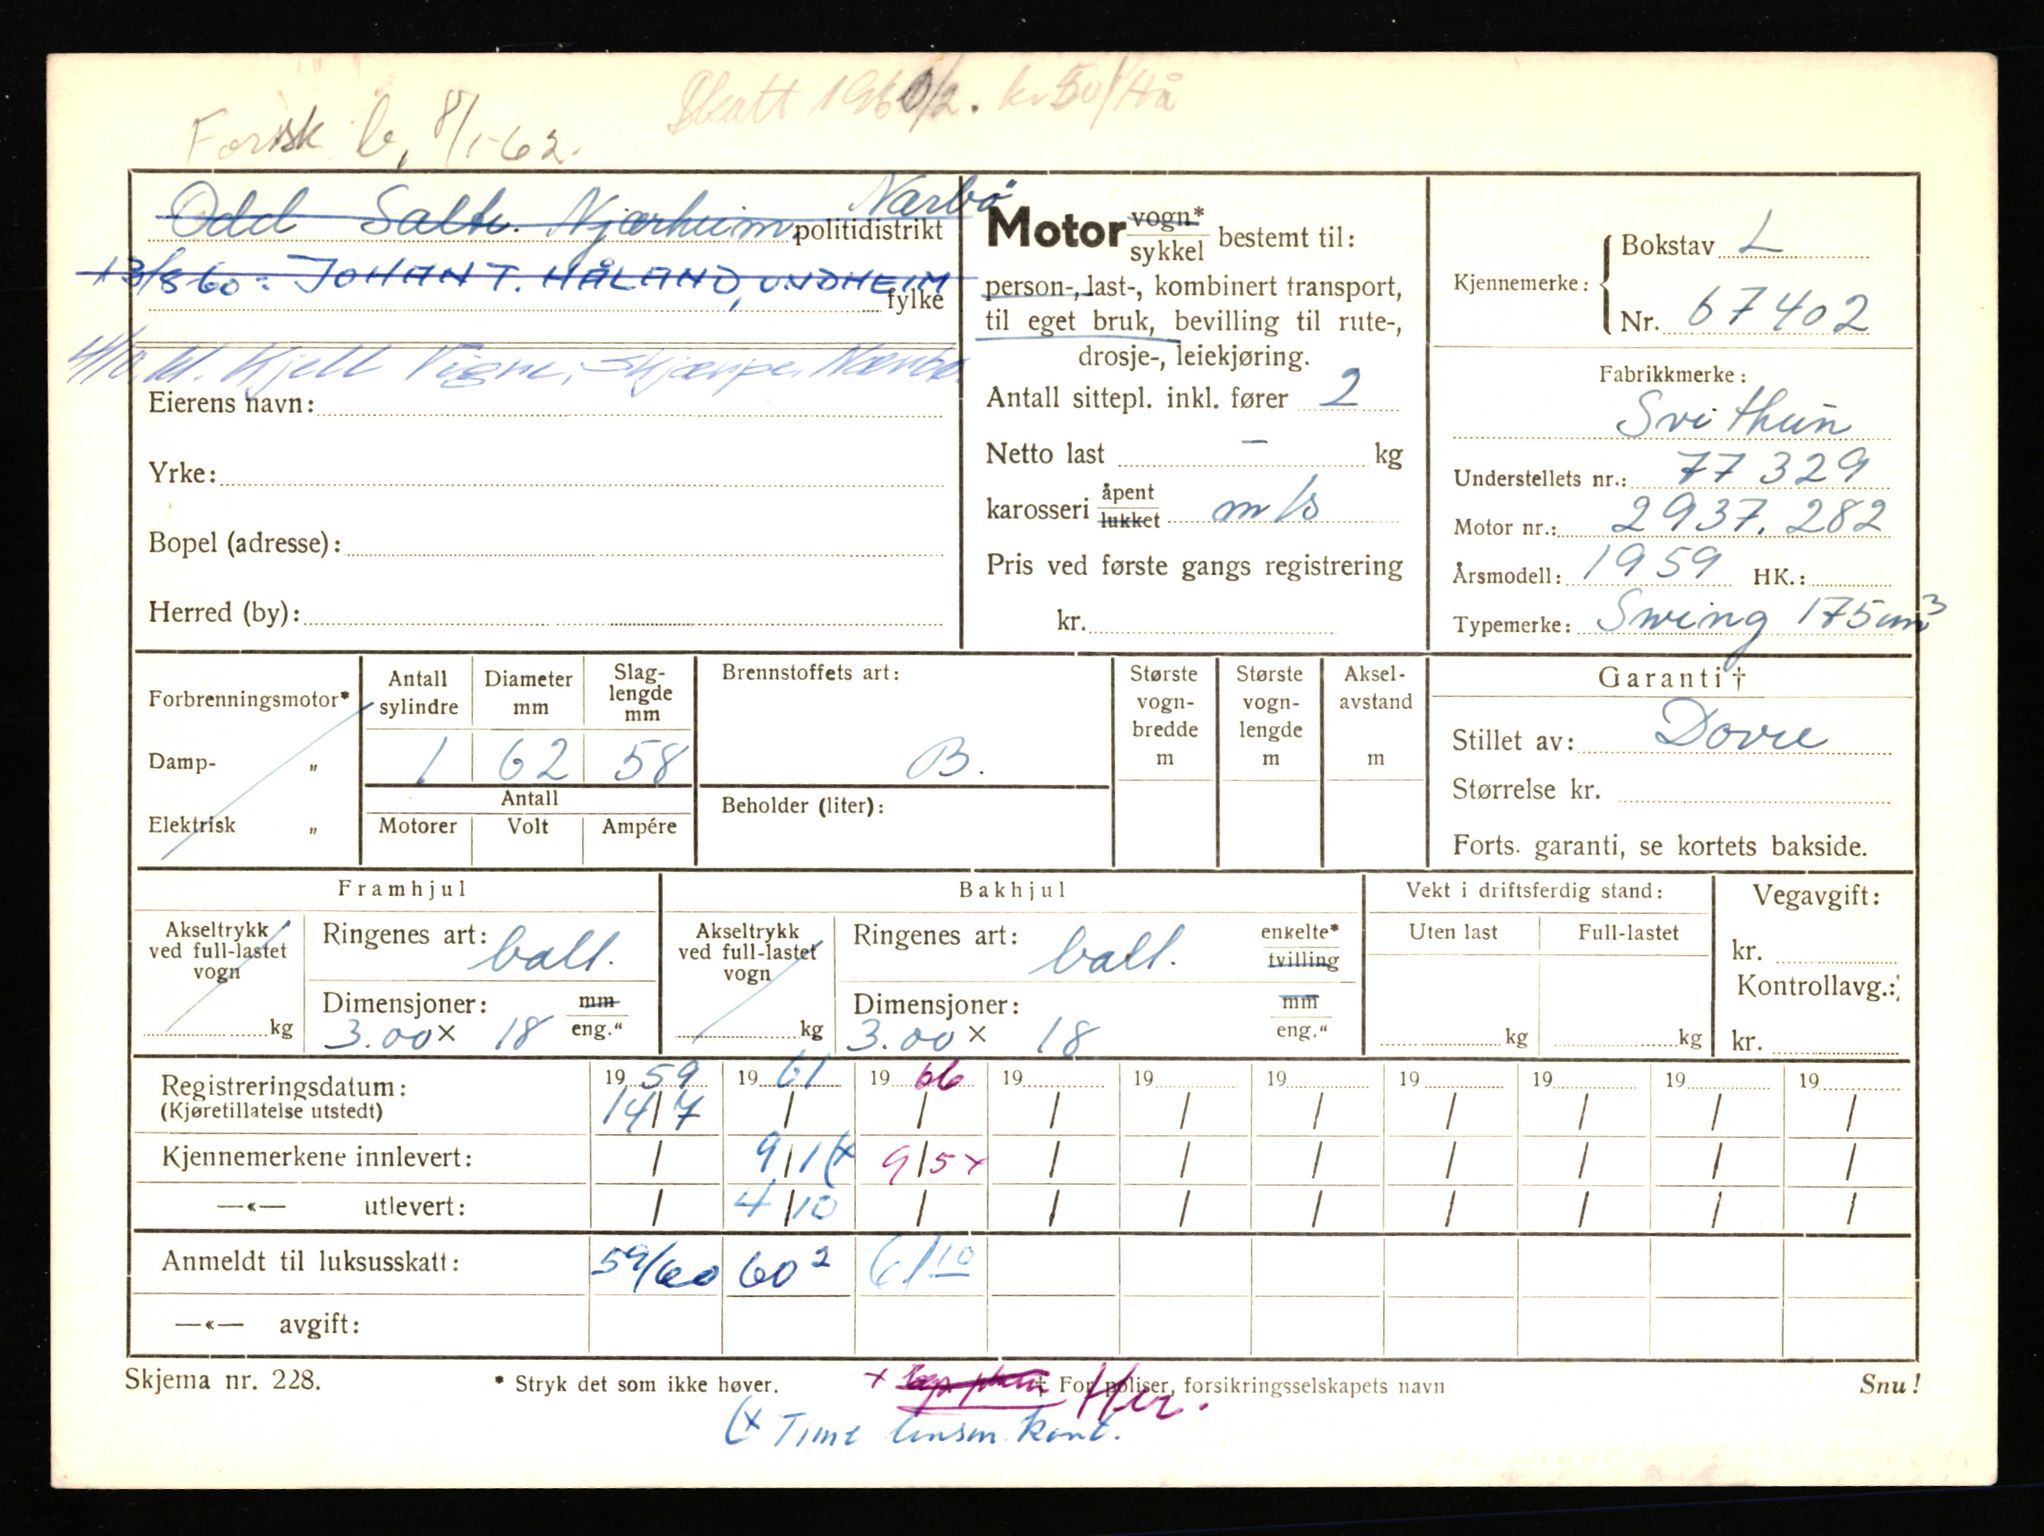 Skatt 1960/2. kr 50/Hå
Forsk b, 8/1-62.
Odd Salte. Njærheim. Nærbö
politidistrikt
13/8 60: JOHAN T. HÅLAND, UNDHEIM
fylke
Kjell Vigre, Skjærpe. Nærbø.
Eierens navn:
Yrke:
Bopel (adresse):
Herred (by):
Motor vogn* / sykkel bestemt til:
person-, last-, kombinert transport,
til eget bruk, bevilling til rute-,
drosje-, leiekjøring.
Antall sittepl. inkl. fører 2
Netto last – kg
karosseri åpent / lukket m/s
Pris ved første gangs registrering
kr.
Kjennemerke: Bokstav L
Nr. 67402
Fabrikkmerke:
Svithun
Understellets nr.: 77329
Motor nr.: 2937.282
Årsmodell: 1959 HK.:
Typemerke: Swing 175cm³
Forbrenningsmotor*
Damp- „
Elektrisk „
Antall sylindre Diameter mm Slaglengde mm
1 62 58
Antall
Motorer Volt Ampére
Brennstoffets art:
B.
Beholder (liter):
Største vogn-bredde m
Største vogn-lengde m
Aksel-avstand m
Garanti †
Stillet av: Dovre
Størrelse kr.
Forts. garanti, se kortets bakside.
Framhjul
Akseltrykk ved full-lastet vogn kg
Ringenes art: ball.
Dimensjoner: mm / eng."
3.00 × 18
Bakhjul
Akseltrykk ved full-lastet vogn kg
Ringenes art: ball. enkelte* / tvilling
Dimensjoner: mm / eng."
3.00 × 18
Vekt i driftsferdig stand:
Uten last Full-lastet
kg kg
Vegavgift:
kr.
Kontrollavg.:
kr.
Registreringsdatum: 19 59 19 61 19 66 19 19 19 19 19 19 19
(Kjøretillatelse utstedt) 14/7 / / / / / / / / /
Kjennemerkene innlevert: / 9/1 (x 9/5 x / / / / / / /
—«— utlevert: / 4/10 / / / / / / / /
Anmeldt til luksusskatt: 59/60 60² 61/10
—«— avgift:
Skjema nr. 228.
* Stryk det som ikke høver.
x Her.
† For poliser, forsikringsselskapets navn
Snu!
(x Time lensm. kont.